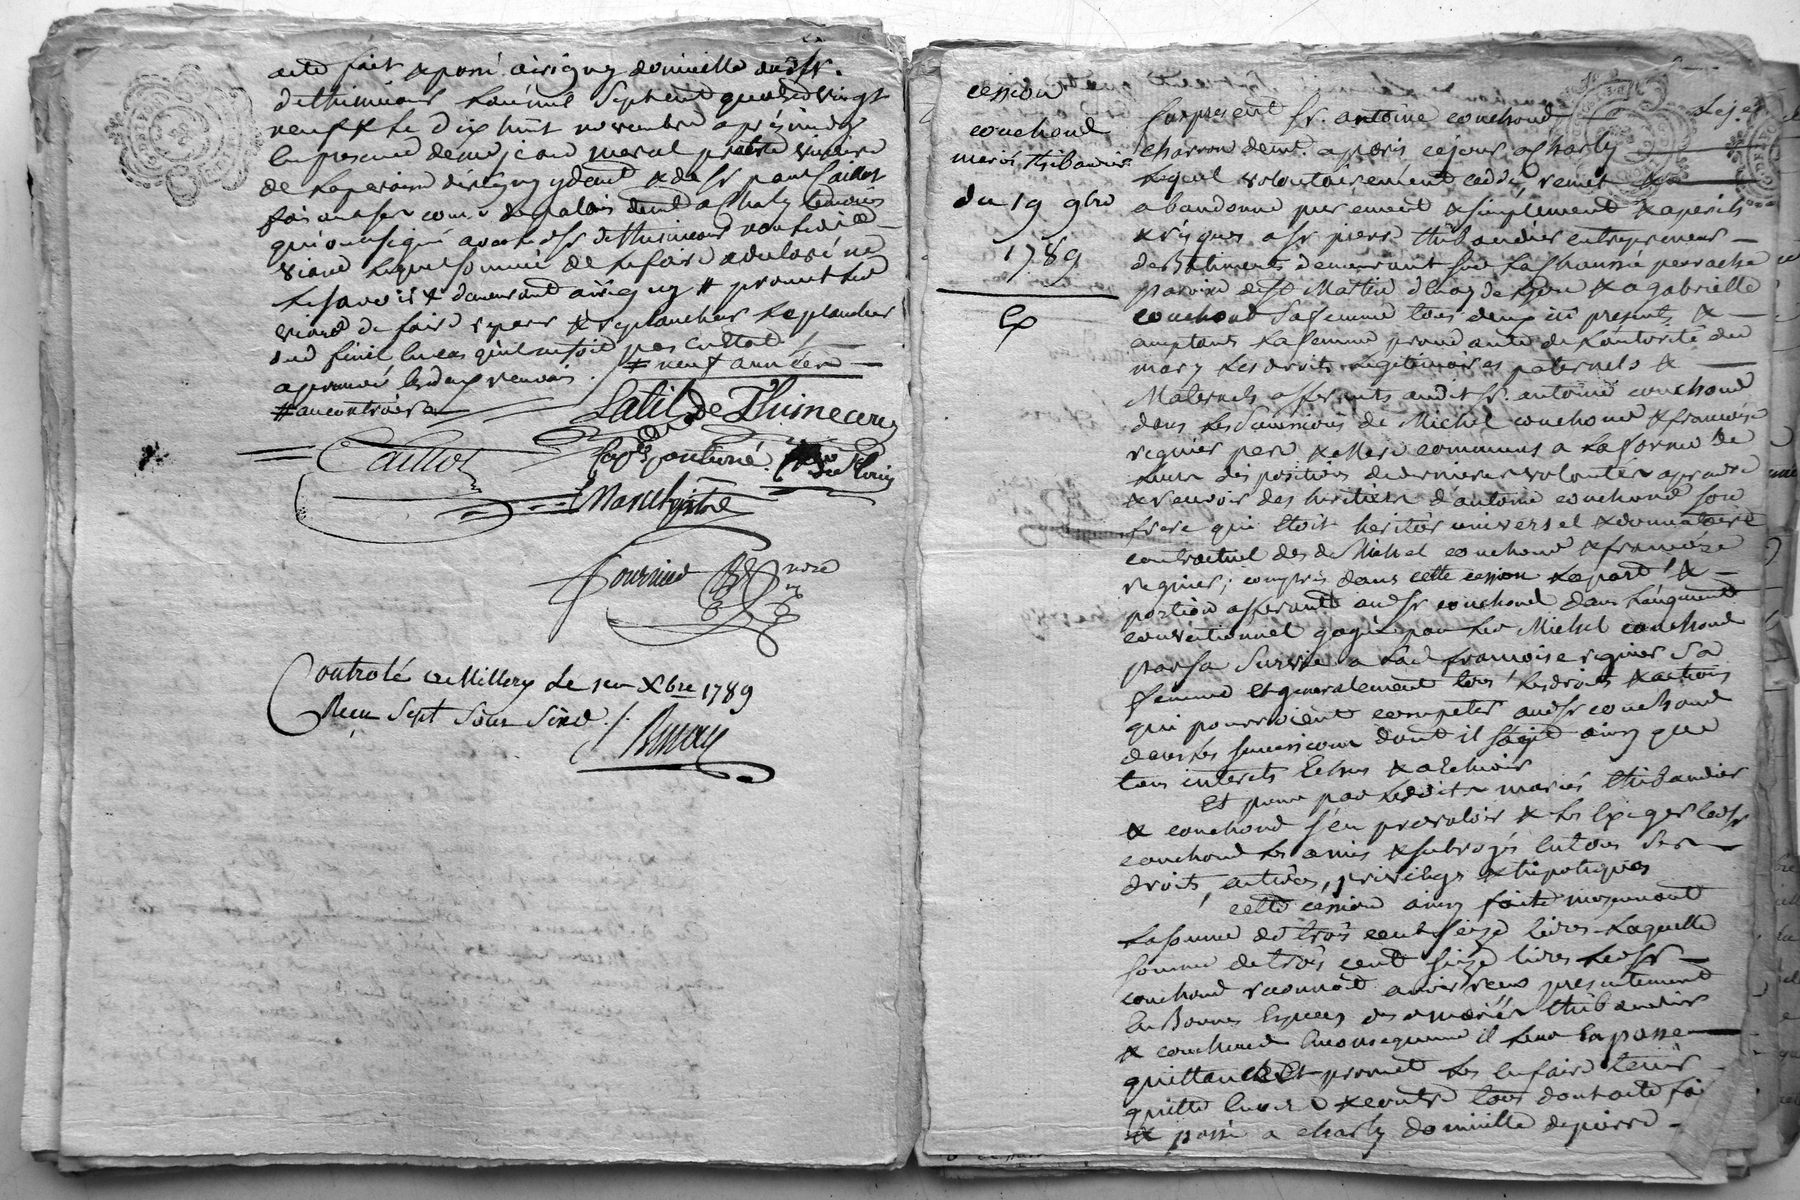 acte fait & passé a irigny domicille dudt Sr.
de Thimecour Lan mil sept cent quatre vingt
neuf & Le dix huit novembre après midy
En presence de me jean
de La paroisse d'irigny y demt & de Sr paul Caillot
demt a Charly temoins
qui ont signé avec Led Sr de Thimecour non
Lequel sommé de Le faire a declaré ne
Le savoir & demeurant a irigny # promet Led
de faire reparer & replancher Le plancher
en cas qu'il ne soit pas en etat
approuvé Les deux renvois. # neuf années
# au contraire
Latil De Thimecour
Caillot
Fournier
nore
Controlé a Millery Le 1er Xbre 1789
Reçu Sept Sous Six d. /.
cession
couchoud
mariés thibaudier
du 19 9bre
1789
Ex
fut present Sr. antoine couchoud
charron demt. a paris ce jour a Charly
Lequel volontairement cedde, remet &
abandonne purement & simplement & a perils
& risques a Sr pierre thibaudier entrepreneur
de Batiments demeurant sur La chaussée perrache
paroisse de St Martin d'Enay de Lyon & a gabrielle
couchoud Sa femme tous deux ici presents &
acceptants La femme procedante de L'autorité du
mary Les droits Legitimaires paternels &
Maternels afferants audit Sr. antoine couchoud
dans Les Successions de Michel couchoud & françoise
reguier pere & Mere communs a La forme de
Leurs dispositions de derniere volonté a prendre
& recevoir des heritiers d'antoine couchoud Son
frere qui etoit heritier universel & donnataire
contractuel desd Michel couchoud & françoise
reguier; compris dans cette cession La part &
portion afferante aud Sr couchoud dans L'augment
conventionnel gagné par Led Michel couchoud
par Sa Survie a Lad françoise reguier Sa
femme Et generalement tous Les droits & actions
qui pourroient competer aud Sr couchoud
dans Les Successions dont il s'agit ainsy que
tous interets Echus & a Echeoir
Et pour par Lesdits mariés thibaudier
& couchoud s'en prevaloir & Les Exiger Led Sr
couchoud Les a mis & subrogés En tous Ses
droits, actions, privileges & hipotheques
cette cession ainsy faite moyennant
La somme de trois cent seize Livres Laquelle
somme de trois cent seize Livres Led Sr
couchoud reconnoit avoir reçu presentement
En Bonnes Especes desd mariés thibaudier
& couchoud En consequence il Leur En passe
quittance Et promet Les En faire tenir
quitte Envers & contre tous dont acte fai
& passé a charly domicille de pierre